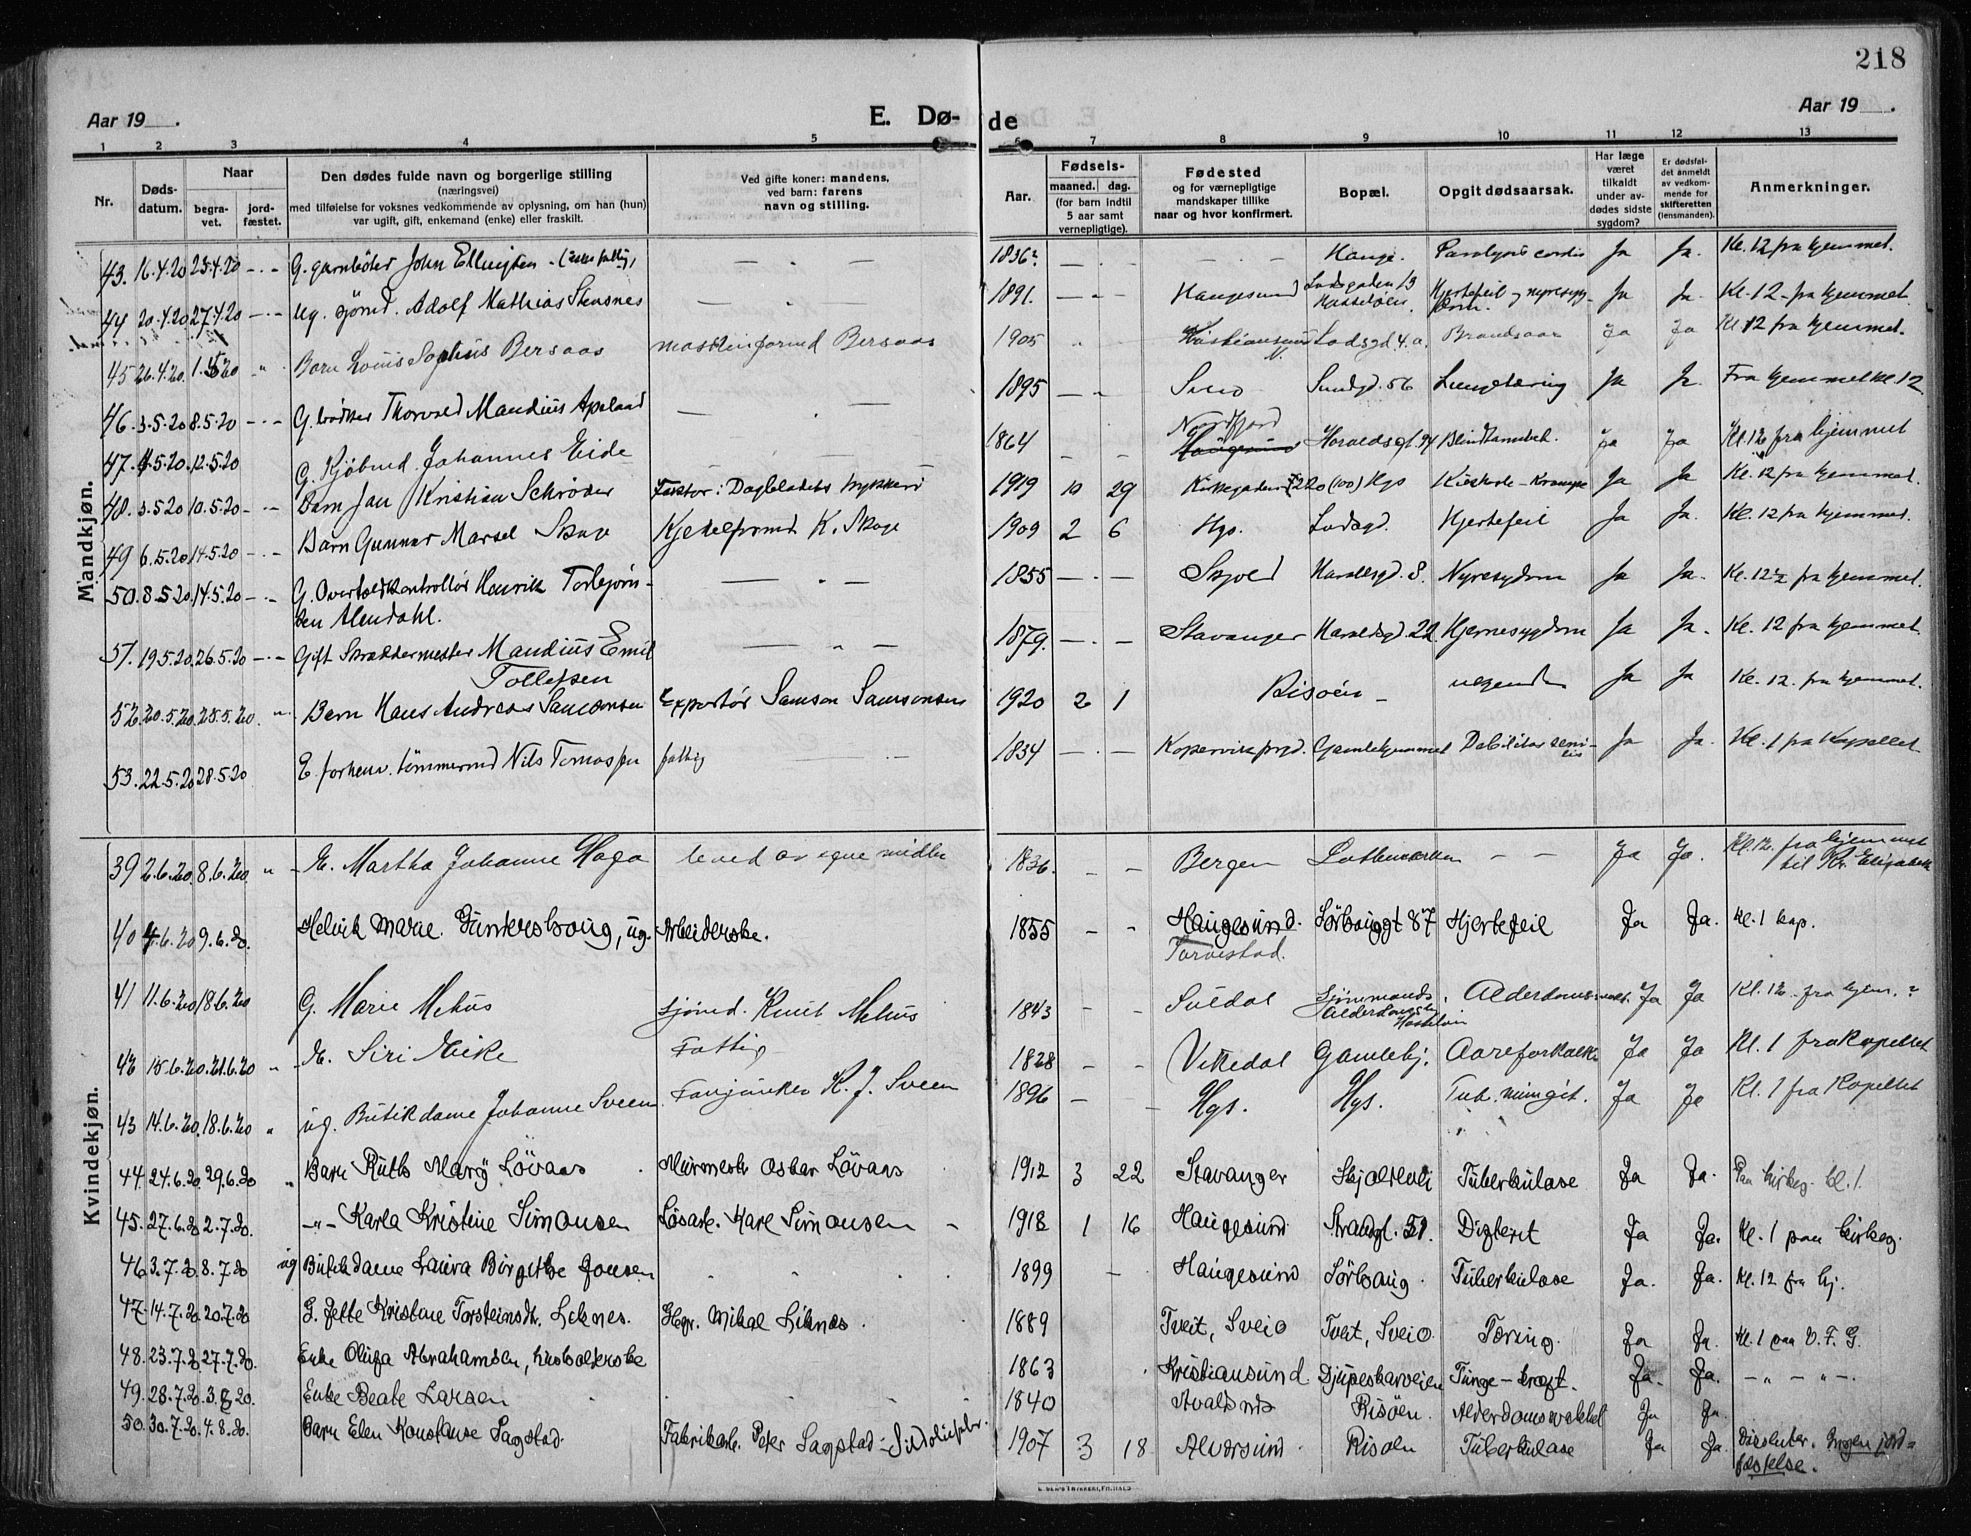 218
Aar 19 . E. Dø- de Aar 19 .
1 2 3 4 5 6 7 8 9 10 11 12 13
Nr. Døds-datum. Naar begra-vet. jord-fæstet. Den dødes fulde navn og borgerlige stilling (næringsvei) med tilføielse for voksnes vedkommende av oplysning, om han (hun) var ugift, gift, enkemand (enke) eller fraskilt. Ved gifte koner: mandens, ved barn: farens navn og stilling. Aar. Fødsels- maaned. dag. (for barn indtil 5 aar samt vernepligtige). Fødested og for værnepligtige mandskaper tillike naar og hvor konfirmert. Bopæl. Opgit dødsaarsak. Har læge været tilkaldt under av-dødes sidste sygdom? Er dødsfal-det anmeldt av vedkom-mende for skifteretten (lensmanden). Anmerkninger.
Mandkjøn.
43. 16.4.20 23.4.20 -.- G. garnbøter John Ellingsen - — . — 1836? — . — — . — Hauge. Paralysis cordis Ja Ja. Kl. 12 fra hjemmet.
44 20.4.20 27.4.20 -.- Ug. sjømd. Adolf Mathias Stensnes — . 1891. — . — Haugesund Lodsgaden 13 Hasseløen. Hjertefeil og nyresyg-dom. Ja Ja. Kl. 12 - fra hjemmet.
45 26.4.20. 1.5.20 " Barn Louis Sophus Bersaas maskinformd Bersaas 1905 Kristiansund N. Lodsgd. 4. a. Brandsaar Ja Ja Kl. 12 fra hjemmet.
46. 3.5.20 8.5.20 -.- G. bødker Thorvald Mandius Apeland — . — 1895 — . — Sveio Sundgd. 56 Lungetæring Ja Ja. Fra hjemmet kl. 12
47. 4.5.20. 12.5.20 G. Kjøbmd. Johannes Eide 1864 - - Nordfjord Haugesund Haraldsgt. 94 Blindtarmbet. Ja Ja Kl. 12 fra hjemmet
48. 3.5.20 10.5.20 - - Barn Jan Kristian Schrøder Faktor i Dagbladets trykkeri 1919 10 29 Kirkegaden 220 (100) Hgs Kikhoste - Krampe Ja Ja. Kl. 12 fra hjemmet.
49 6.5.20 14.5.20 -.- Barn Gunnar Marsel Skoge Kjedelformd K. Skoge 1909 2 6 Hgs. Lodsgd. Hjertefeil Ja Ja. Kl. 12 fra hjemmet.
50. 8.5.20 14.5.20 -.- G. Overtoldkontrollør Henrik Torbjørn-
sen Alendahl. — " — 1855 — . — Skjold Haraldsgd. 8. Nyresygdom Ja Ja. Kl. 12½ fra hjemmet.
51. 19.5.20. 26.5.20 -.- Gift Skræddermester Mandius Emil
Tollefsen — " — 1879. — . — Stavanger Haraldsgd. 22 Hjernesygdom Ja Ja. Kl. 12 fra hjemmet
52. 20.5.20. 25.5.20. " Barn Hans Andreas Samsonsen Exportør Samson Samsonsen 1920 2 1 Risøen - Ja Ja Kl. 12. fra hjemmet.
53. 22.5.20 28.5.20 E. forhenv. tømmermd Nils Tomassen fattig — — 1834 — . — Kopervik prgd. Gamlehjemmet Debilitas seni-
lis Ja Ja. Kl. 1 fra Kapellet
Kvindekjøn.
39 2.6.20. 8.6.20. " E. Martha Johanne Haga leved av egne midler 1836. - - Bergen - - Ja Ja. Kl. 12. fra hjemmet
til Kr. Elisabeth
40 4.6.20 9.6.20. Helvik Marie Gunderskoug, ug. Arbeiderske. 1855 - - Haugesund. Sørhauggt 87 Hjertefeil Ja Ja. Kl. 1 kap.
Torvestad.
41 11.6.20 18.6.20 G. Marie Mehus sjømd. Knut Mehus 1843 - - Suldal Sjømmands Alderdomshj. Hasseløen Alderdomssvakh. Ja Ja Kl. 12. fra hjem. ?
42 15.6.20. 21.6.20 " E. Siri Eike Fattig 1828 - - Vikedal Gamlehj. Aareforkalkn Ja Ja Kl. 1 fra Kapellet
43 14.6.20. 18.6.20 " ug. Butikdame Johanne Sveen. Fanjunker K. J. Sveen 1896 - - Hgs. Hgs. Tub. mimgit. Ja Ja Kl. 1 fra Kapellet
44. 24.6.20. 29.6.20 " Barn Ruth Mary Løvaas Murmestr. Oskar Løvaas 1912 3 22 Stavanger Skjoldvei Tuberkulose Ja Ja. Paa kirkeg. kl. 1.
45. 27.6.20 2.7.20. -"- Karla Kristine Simonsen Løsarb. Karl Simonsen 1918 1 16 Haugesund Strandgt. 51. Difterit Ja Ja. Kl. 1 paa kirkeg.
46 3.7.20 8.7.20 ug Butikdame Laura Birgithe Jonsen 1899 - Haugesund Sørhaug. Tuberkulose Ja. Ja. Kl. 12 fra hj.
47. 14.7.20 20.7.20 G. Jette Kristine Torsteinsdtr. Liknes. Gbr. Mikal Liknes. 1889 Tveit, Sveio Tveit, Sveio. Tæring. Ja Ja. Kl. 1 paa V. F. G.
48. 23.7.20 27.7.20. Enke Olufa Abrahamsen, husholderske 1863 Kristiansund Djupeskarveien Tunge-kræft. Ja. Ja. - " - " - .
49. 28.7.20. 3.8.20. Enke Beate Larsen 1840 Avaldsnes Risøen. Alderdomsvækket Ja Ja.
50. 30.7.20. 4.8.20. Barn Elen Konstanse Sagstad. Fabrikarb. Peter Sagstad - Sildoliefabr. 1907 3 18 Alversund Risøen Tuberkulose Ja Ja. Dissenter. Ingen jord-
fæstelse.